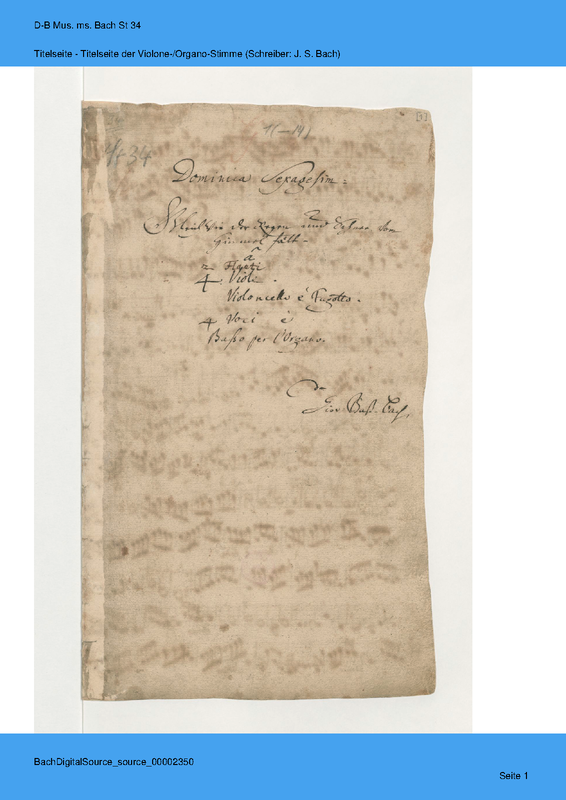 D-B Mus. ms. Bach St 34
Titelseite - Titelseite der Violone-/Organo-Stimme (Schreiber: J. S. Bach)
[1]
1(–14)
34
Dominica Sexagesim:
Gleich wie der Regen und Schnee vom
Himmel fält.
â
2 Flauti
4 Viole.
Violoncello è Fagotto.
4 Voci è
Basso per l'Organo.
di
Gio. Bast. Bach.
BachDigitalSource_source_00002350
Seite 1